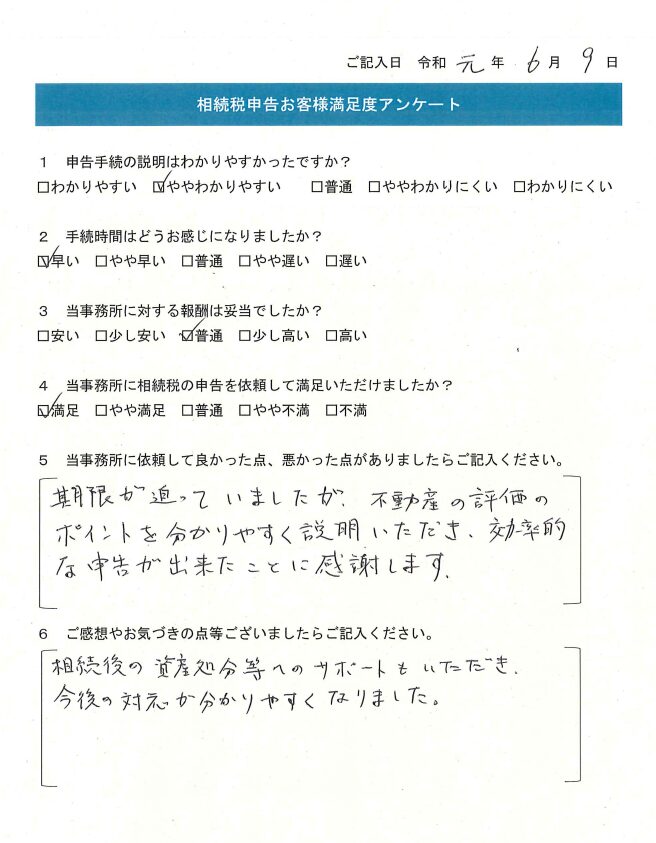 ご記入日 令和 元 年 6 月 9 日
相続税申告お客様満足度アンケート
1 申告手続の説明はわかりやすかったですか?
□わかりやすい ☑ややわかりやすい □普通 □ややわかりにくい □わかりにくい
2 手続時間はどうお感じになりましたか?
☑早い □やや早い □普通 □やや遅い □遅い
3 当事務所に対する報酬は妥当でしたか?
□安い □少し安い ☑普通 □少し高い □高い
4 当事務所に相続税の申告を依頼して満足いただけましたか?
☑満足 □やや満足 □普通 □やや不満 □不満
5 当事務所に依頼して良かった点、悪かった点がありましたらご記入ください。
期限が迫っていましたが、不動産の評価の
ポイントを分かりやすく説明いただき、効率的
な申告が出来たことに感謝します。
6 ご感想やお気づきの点等ございましたらご記入ください。
相続後の資産処分等へのサポートもいただき、
今後の対応が分かりやすくなりました。